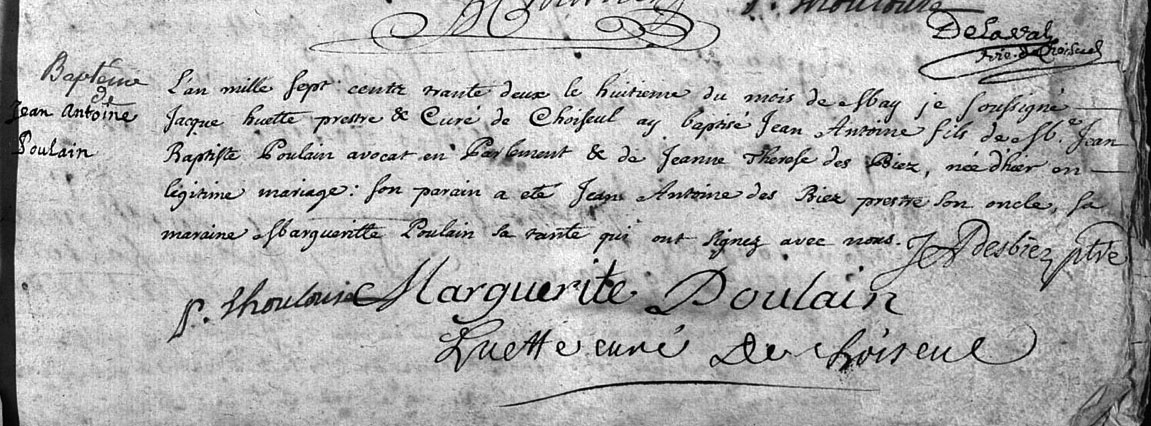 P. thoulouse
De Laval
vic. de Choiseul
Baptéme
de
Jean Antoine
Poulain
L'an mille sept cents trante deux le huitieme du mois de May je soussigné
Jacque huette prestre & Curé de Choiseul ay baptisé Jean Antoine fils de Mr. Jean
Baptiste Poulain avocat en Parlement & de Jeanne Therese des Biez, née d'hier en
légitime mariage: son parain a eté Jean Antoine des Biez prestre son oncle, sa
maraine Margueritte Poulain sa tante qui ont signez avec nous. JA Desbiez ptre
P. thoulouse Marguerite Poulain
huette curé De choiseul